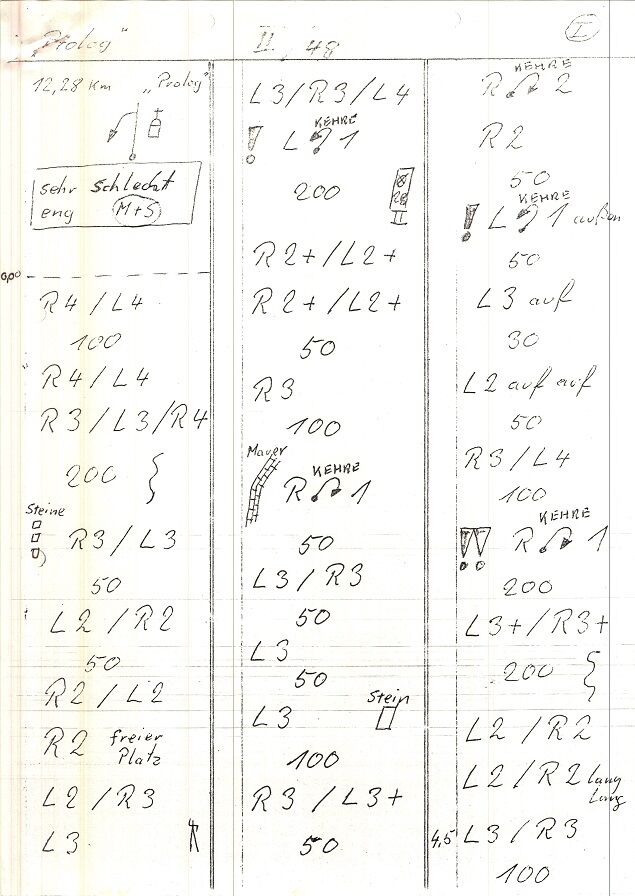 „Prolog" II, 48 I
12,28 Km „Prolog"
sehr schlecht
eng M+S
R4/L4
100
R4/L4
R3/L3/R4
200
Steine
R3/L3
50
L2/R2
50
R2/L2
R2 freier
Platz
L2/R3
L3
L3/R3/L4
KEHRE
! L 1
200
II
R2+/L2+
R2+/L2+
50
R3
100
Mauer
KEHRE
R 1
50
L3/R3
50
L3
50
Stein
L3
100
R3/L3+
50
KEHRE
R 2
R2
50
KEHRE
! L 1 außen
50
L3 auf
30
L2 auf auf
50
R3/L4
100
KEHRE
!! R 1
200
L3+/R3+
200
L2/R2
L2/R2 lang
lang
4,5 L3/R3
100